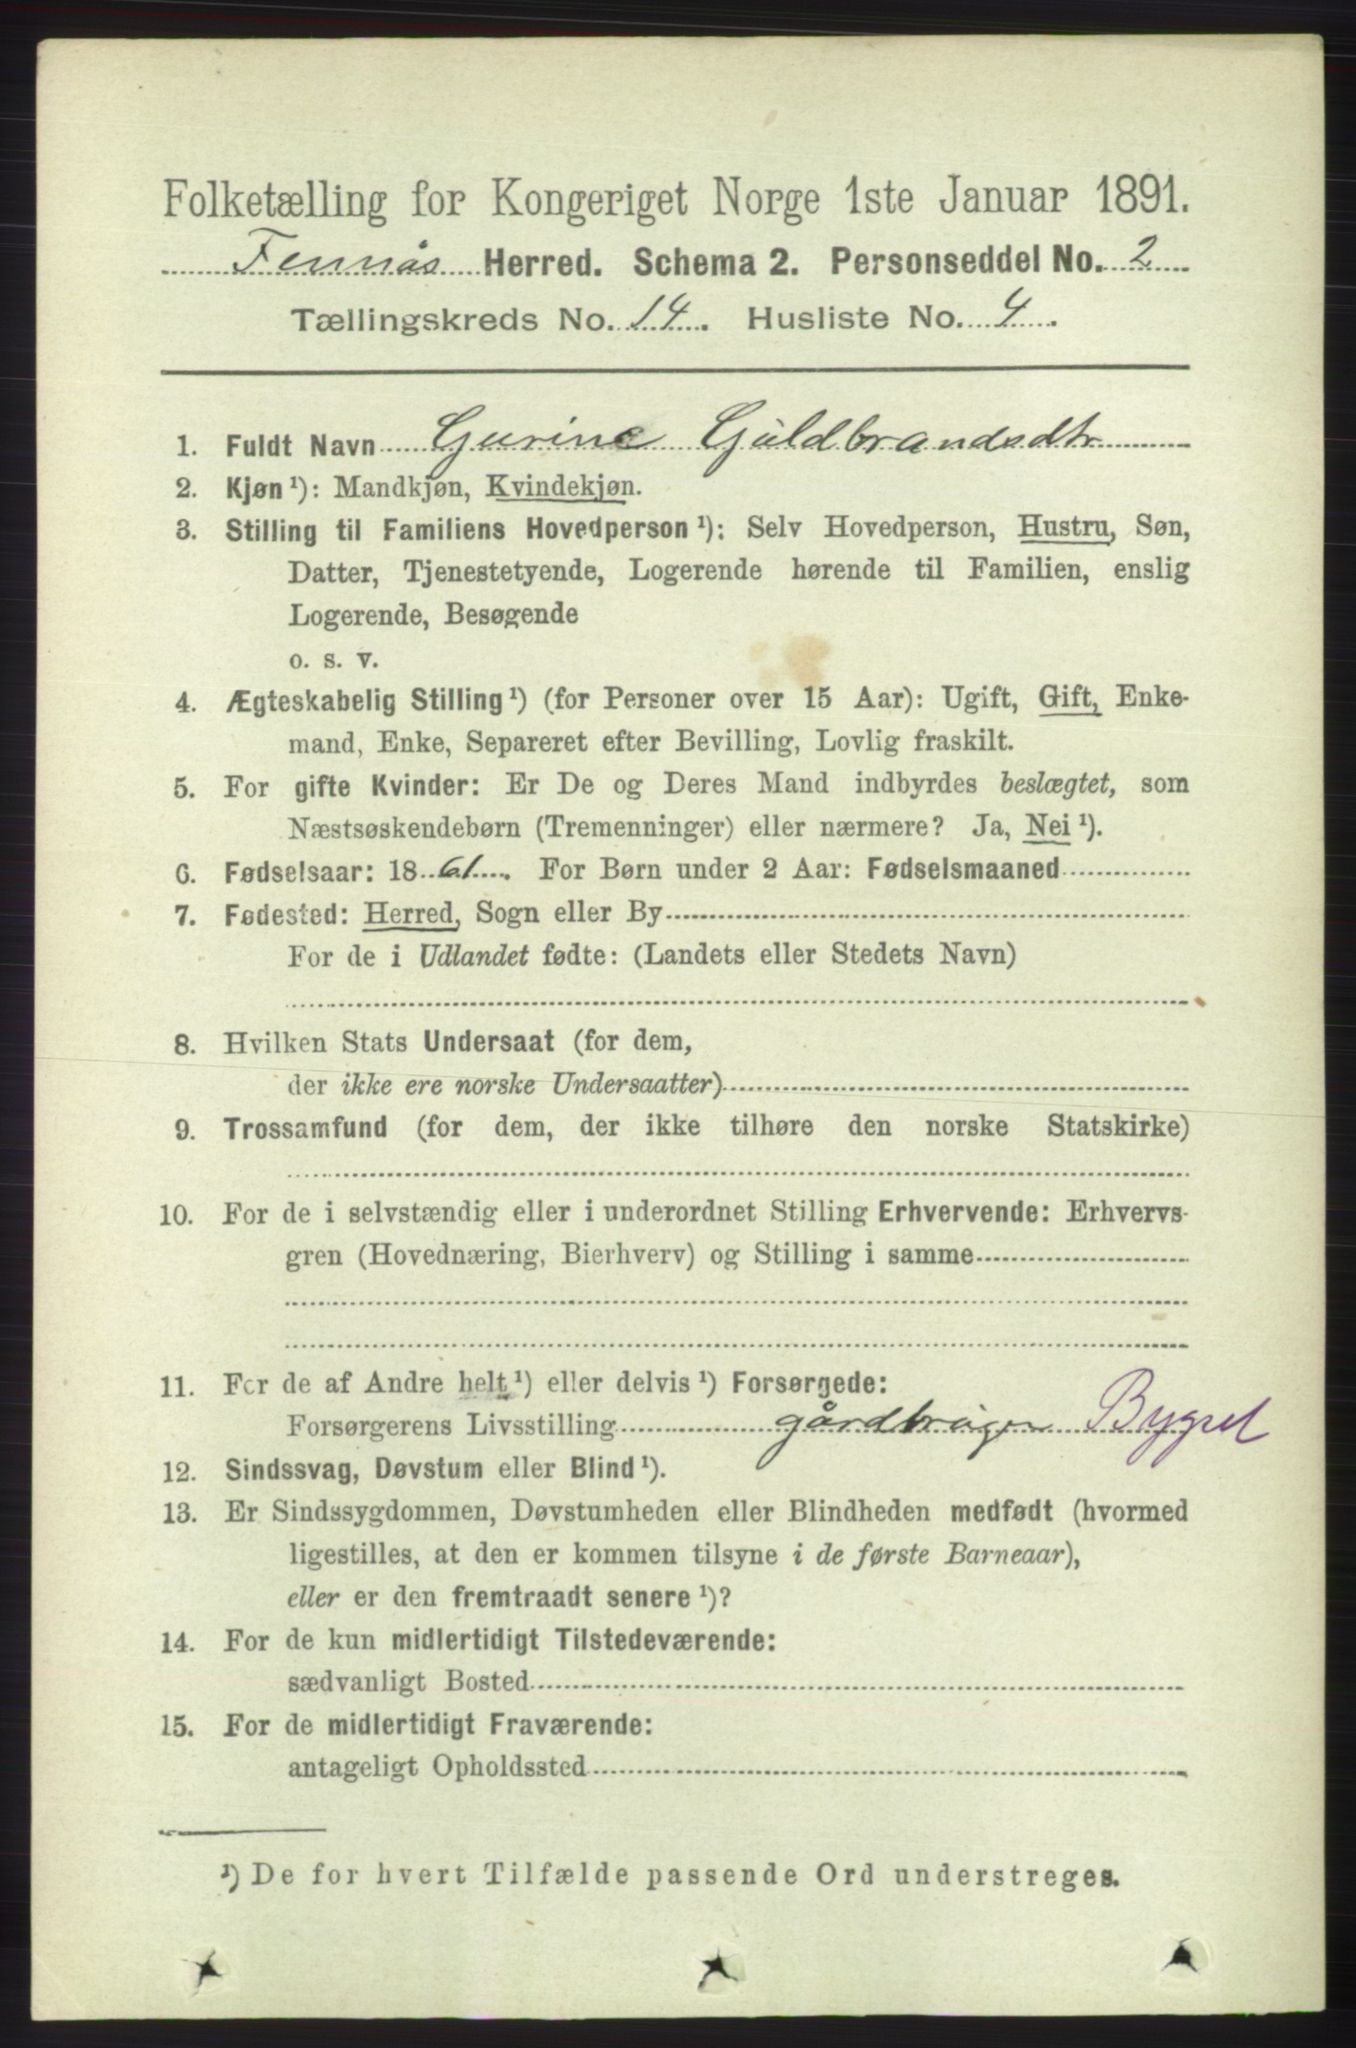 Folketælling for Kongeriget Norge 1ste Januar 1891.
Fennås Herred. Schema 2. Personseddel No. 2
Tællingskreds No. 14. Husliste No. 4.
1. Fuldt Navn Gurine Guldbrandsdtr
2. Kjøn ¹): Mandkjøn, Kvindekjøn.
3. Stilling til Familiens Hovedperson ¹): Selv Hovedperson, Hustru, Søn,
Datter, Tjenestetyende, Logerende hørende til Familien, enslig
Logerende, Besøgende
o. s. v.
4. Ægteskabelig Stilling ¹) (for Personer over 15 Aar): Ugift, Gift, Enke-
mand, Enke, Separeret efter Bevilling, Lovlig fraskilt.
5. For gifte Kvinder: Er De og Deres Mand indbyrdes beslægtet, som
Næstsøskendebørn (Tremenninger) eller nærmere? Ja, Nei ¹).
6. Fødselsaar: 1861. For Børn under 2 Aar: Fødselsmaaned
7. Fødested: Herred, Sogn eller By
For de i Udlandet fødte: (Landets eller Stedets Navn)
8. Hvilken Stats Undersaat (for dem,
der ikke ere norske Undersaatter)
9. Trossamfund (for dem, der ikke tilhøre den norske Statskirke)
10. For de i selvstændig eller i underordnet Stilling Erhvervende: Erhvervs-
gren (Hovednæring, Bierhverv) og Stilling i samme
11. For de af Andre helt ¹) eller delvis ¹) Forsørgede:
Forsørgerens Livsstilling gårdbruger Bygsel
12. Sindssvag, Døvstum eller Blind ¹).
13. Er Sindssygdommen, Døvstumheden eller Blindheden medfødt (hvormed
ligestilles, at den er kommen tilsyne i de første Barneaar),
eller er den fremtraadt senere ¹)?
14. For de kun midlertidigt Tilstedeværende:
sædvanligt Bosted
15. For de midlertidigt Fraværende:
antageligt Opholdssted
¹) De for hvert Tilfælde passende Ord understreges.